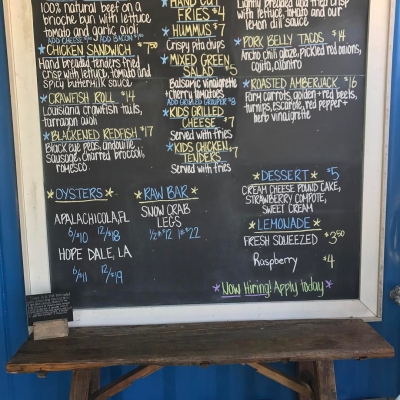 100% natural beef on a
brioche bun with lettuce
tomato and garlic aioli
ADD CHEESE ADD BACON
CHICKEN SANDWICH $7.50
Hand breaded tenders fried
crisp with lettuce, tomato and
spicy buttermilk sauce
CRAWFISH ROLL $14
Louisiana crawfish tails,
tarragon aioli
BLACKENED REDFISH $17
Black eye peas, andouille
sausage, charred broccoli,
romesco
OYSTERS
APALACHICOLA, FL
6/$10 12/$18
HOPE DALE, LA
6/$11 12/$19
HAND CUT
FRIES $4
HUMMUS $7
Crispy pita chips
MIXED GREEN
SALAD $5
Balsamic vinaigrette
+ cherry tomatoes
ADD GRILLED GROUPER $8
KIDS GRILLED
CHEESE $7
Served with fries
KIDS CHICKEN
TENDERS $7
Served with fries
RAW BAR
SNOW CRAB
LEGS
1/2# $12 1# $22
Lightly breaded and fried crisp
with lettuce, tomato and our
lemon dill sauce
PORK BELLY TACOS $14
Ancho chili glaze, pickled red onions,
cojita, cilantro
ROASTED AMBERJACK $16
Farm carrots, golden + red beets,
turnips, escarole, red pepper +
herb vinaigrette
DESSERT $5
CREAM CHEESE POUND CAKE,
STRAWBERRY COMPOTE,
SWEET CREAM
LEMONADE
FRESH SQUEEZED $3.50
Raspberry $4
Now Hiring! Apply today